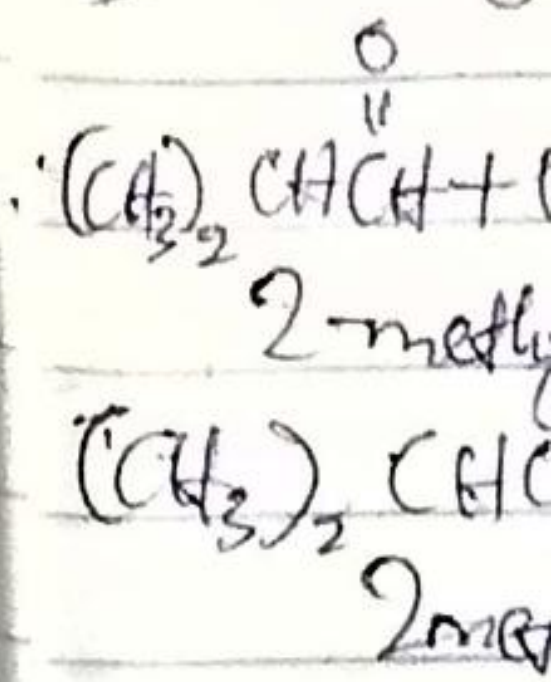 O
||
(CH3)2 CHCH + (
2-methy
(CH3)2 CHC
2met